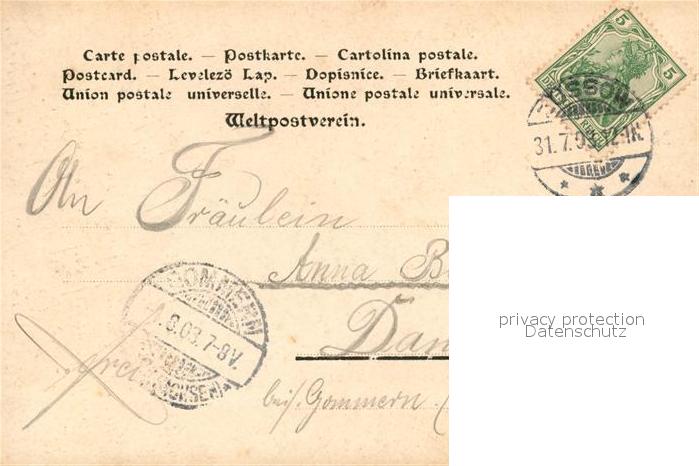 Carte postale. — Postkarte. — Cartolina postale.
Postcard. — Levelező Lap. — Dopisnice. — Briefkaart.
Union postale universelle. — Unione postale universale.
Weltpostverein.
5 5
31.7.0
An Fräulein
Anna B
GOMMERN
8.03.7-8V.
Dan
frei
beis. Gommern.
privacy protection
Datenschutz